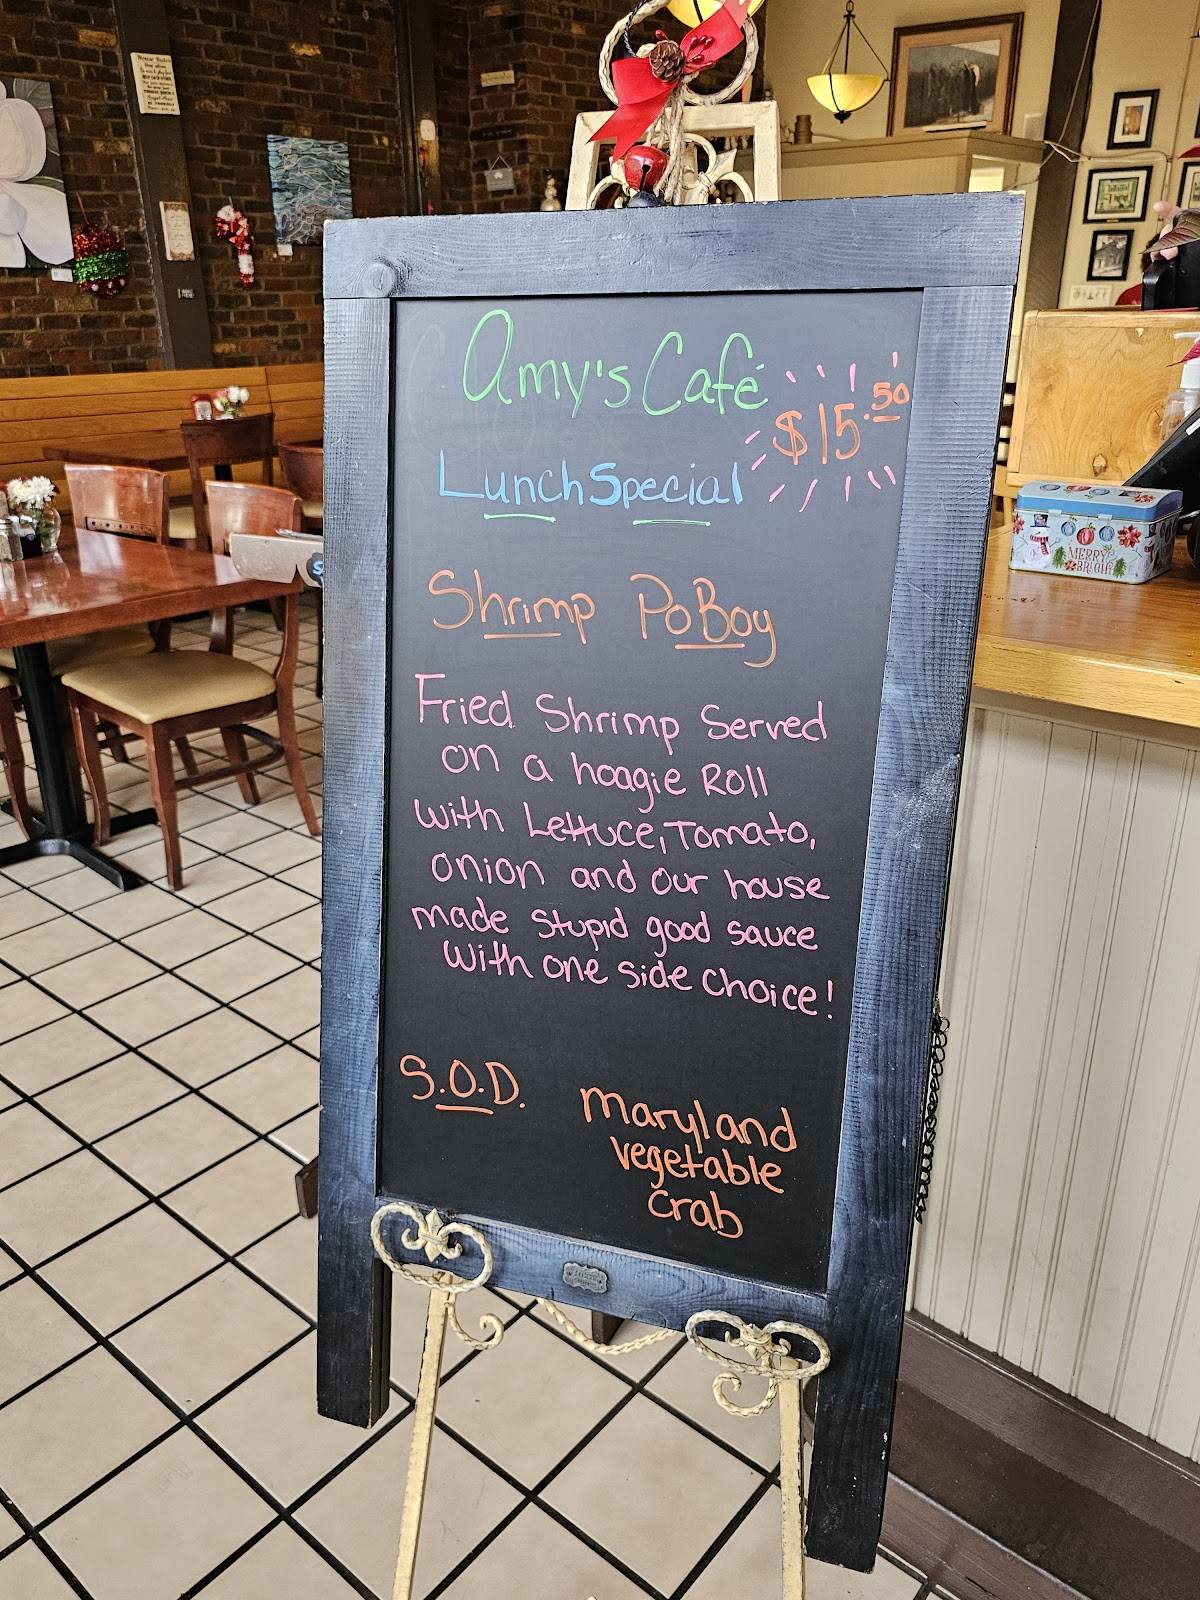 Amy's Café
$15.50
Lunch Special
Shrimp PoBoy
Fried Shrimp Served
on a hoagie Roll
with Lettuce, Tomato,
onion and our house
made stupid good sauce
with one side choice!
S.O.D.
Maryland
vegetable
crab
MERRY
& BRIGHT